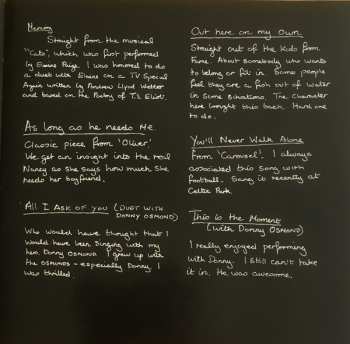 Memory
Straight from the musical
"Cats", which was first performed
by Elaine Paige. I was honored to do
a duet with Elaine on a TV Special
Again written by Andrew Lloyd Webber
and based on the Poetry of T.S Eliot.
As long as he needs Me.
Classic piece from 'Oliver'
We get an insight into the real
Nancy as she says how much she
needs her boyfriend.
All I Ask of you (DUET WITH
DONNY OSMOND)
Who would have thought that I
would have been singing with my
hero. Donny OSMOND. I grew up with
the OSMONDS - especially Donny. I
was thrilled.
Out here on my own.
Straight out of the Kids from
Fame. About somebody who wants
to belong or fit in. Some people
feel they are a fish out of water
in some situations. The Character
here brought this back. Hard one
to do.
You'll Never Walk Alone
From 'Carousel'. I always
associated this song with
football. Sang it recently at
Celtic Park.
This is the Moment
(with Donny OSMOND)
I really enjoyed performing
with Donny. I still can't take
it in. He was awesome.